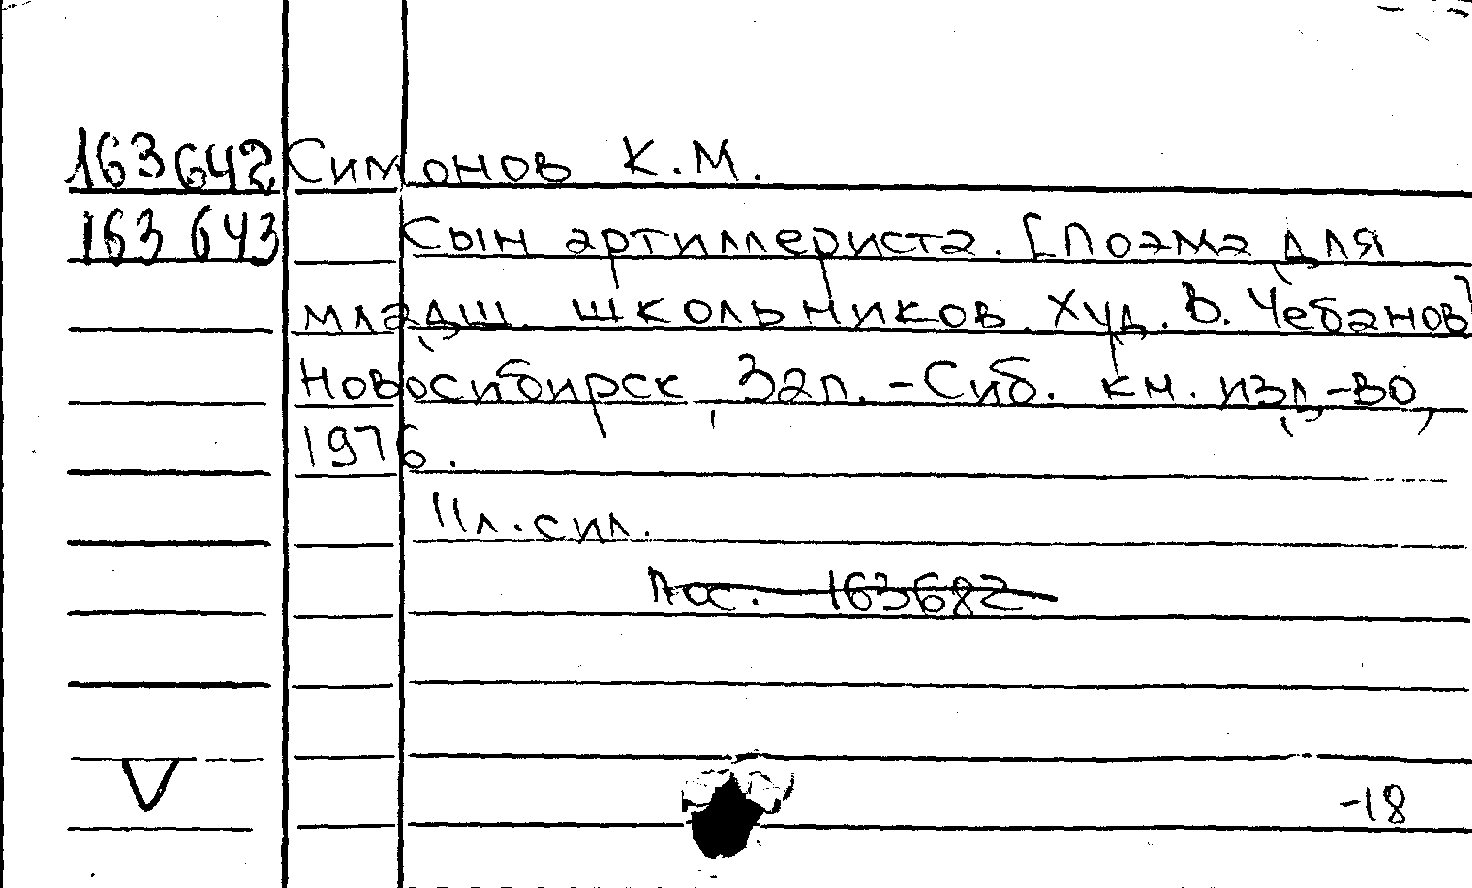 163642 Симонов К.М.
163643 Сын артиллериста. [Поэма для
младш. школьников. Худ. В. Чебанов]
Новосибирск, Зап.-Сиб. кн. изд-во,
1976.
11л. с ил.
Пос. 163682
V -18